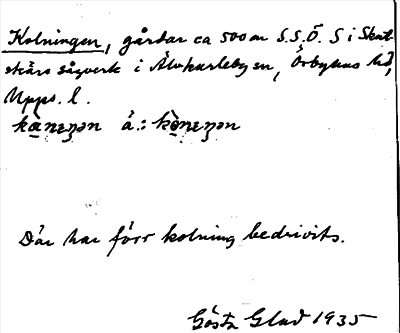 Kolningen, gårdar ca 500 m S.S.Ö. S i Skut
skärs sågverk i Älvkarleby sn, Örbyhus hd,
Upps. l.
å.:
Där har förr kolning bedrivits.
Gösta Glad 1935